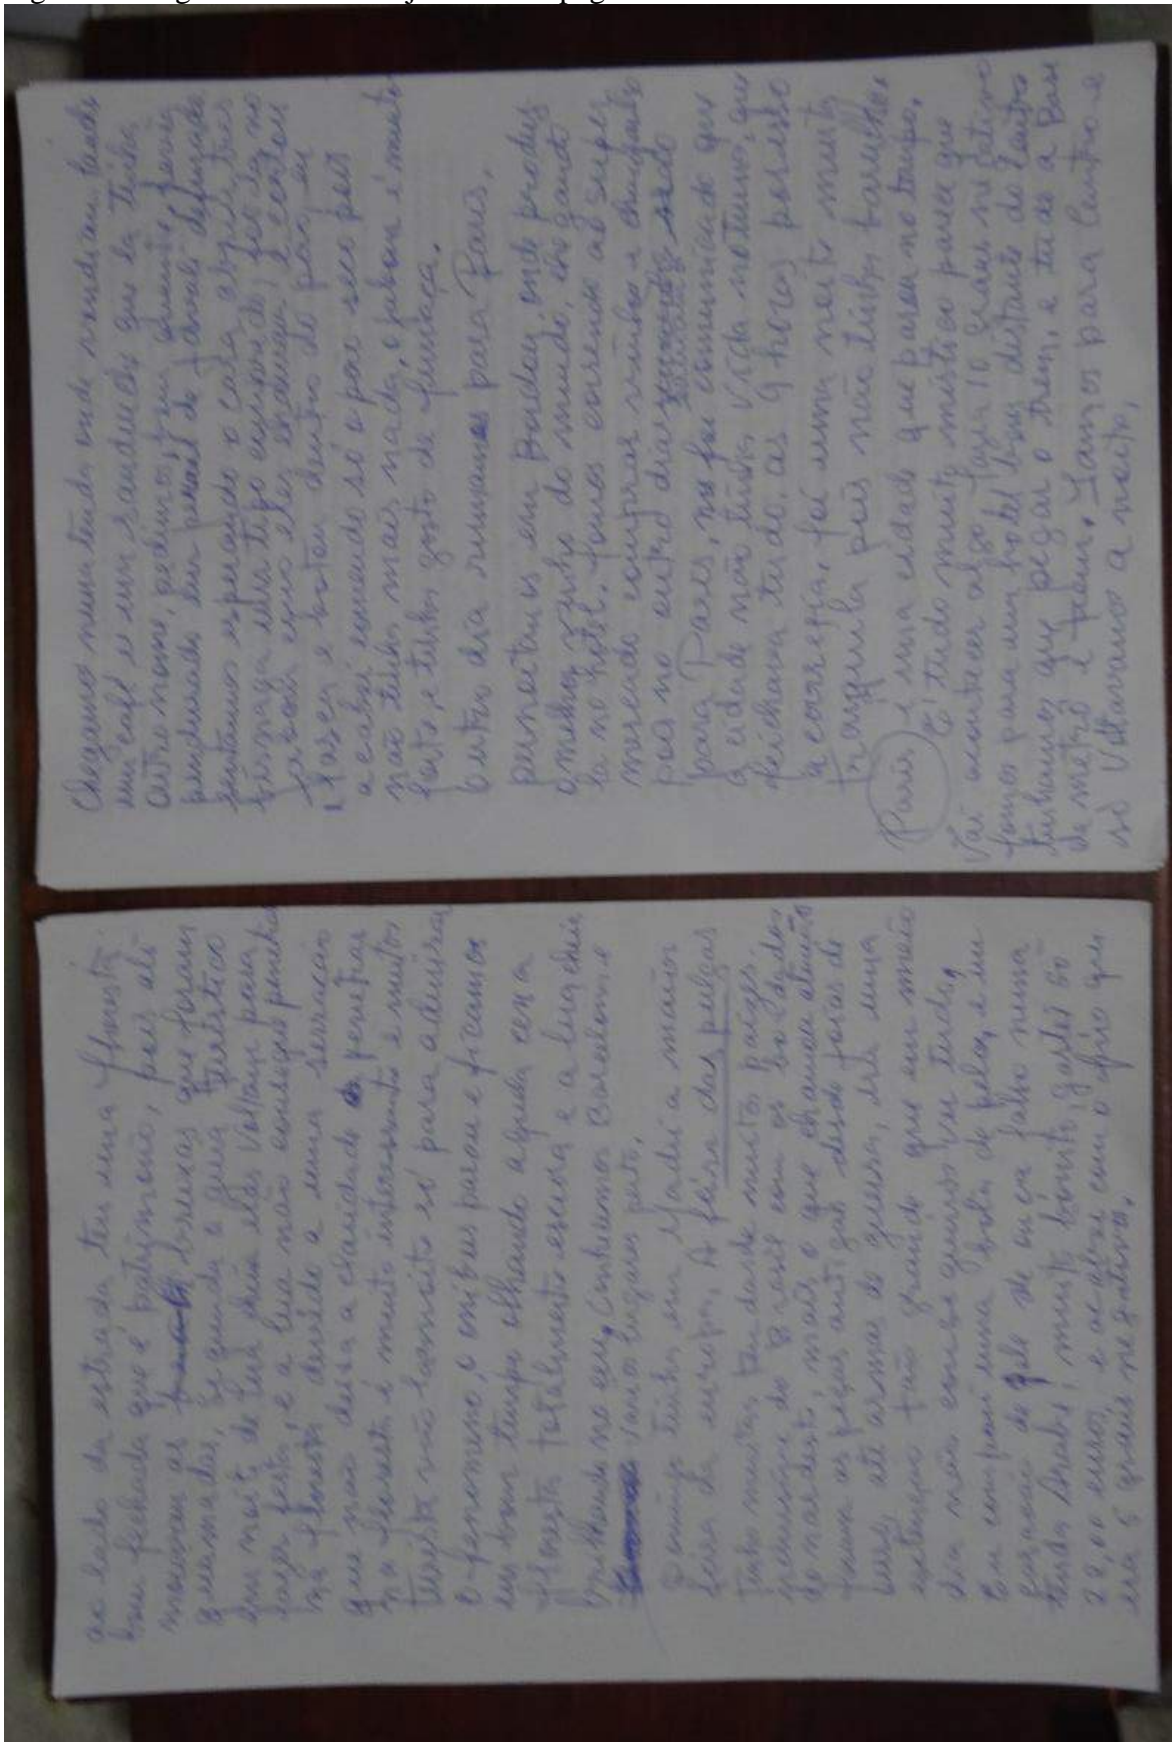 ao lado da estrada tem uma floresta
bem fechada que é patrimonio, pois ali
moravam as bruxas que foram
queimadas, segundo a guia turistica
em noite de lua cheia elas voltam para
fazer festa, e a lua não consegue penetrar
na floresta devido a uma serração
que não deixa a claridade penetrar
na floresta é muito interessante e muitos
turistas vão lá a noite só para admirar
o fenomeno, o onibus parou e ficamos
um bom tempo olhando aquela cena
floresta totalmente escura e a lua cheia
brilhando no ceu, conhecemos Barcelona e
varios lugares perto.
Domingo tinha em Madri a maior
feira da europa, A feira das pulgas
Tinha muitas tendas de muitos paizes.
inclusive do Brasil com os bordados
do nordeste, mais o que chamou atenção
foram as peças antigas desde fotos de
até armas de guerra, era uma
extenção tão grande que em meio
dia não consegue quer ver tudo,
Eu comprei uma bota de pelos, e um
casacão de pele de onça falso numa
tenda árabe, muito bonito, gastei só
20,00 euros e acabei com o frio que
era 5 graus negativos.
Chegamos numa tenda onde vendiam lanche
um café e um sanduiche que lá tinha
outro nome, pedimos, fiz quando foi
pendurado um pernil de javali defumado
sentamos esperando o cara abriu tres
bisnaga era tipo cacoando, foi da no
javali que eles e cortou
lascas e botou dentro do pão, eu
acabei comendo só o pão seco pois
não tinha mais nada, o sabor é muito
forte, e tinha gosto de fumaça.
Outro dia rumamos para Paris,
pernoitamos em Bordeaux, onde produz
o melhor vinho do mundo, chegando
la no hotel. fomos correndo ao super
mercado comprar vinho e chocolate
pois no outro dia
para Paris, foi comunicado que
a cidade não tinha vida noturna, que
fechava tudo, as 9 horas por isto
a correria, foi uma noite muito
tranquila pois não tinha barulho.
Paris é uma cidade que parou no tempo,
É tudo muito mistico parece que
vai acontecer algo fazia 10 graus negativo
fomos para um hotel bem distante do centro
tinhamos que pegar o trem, e tudo a Base
de metro e trem. Íamos para centro e
só voltavamos a noite,